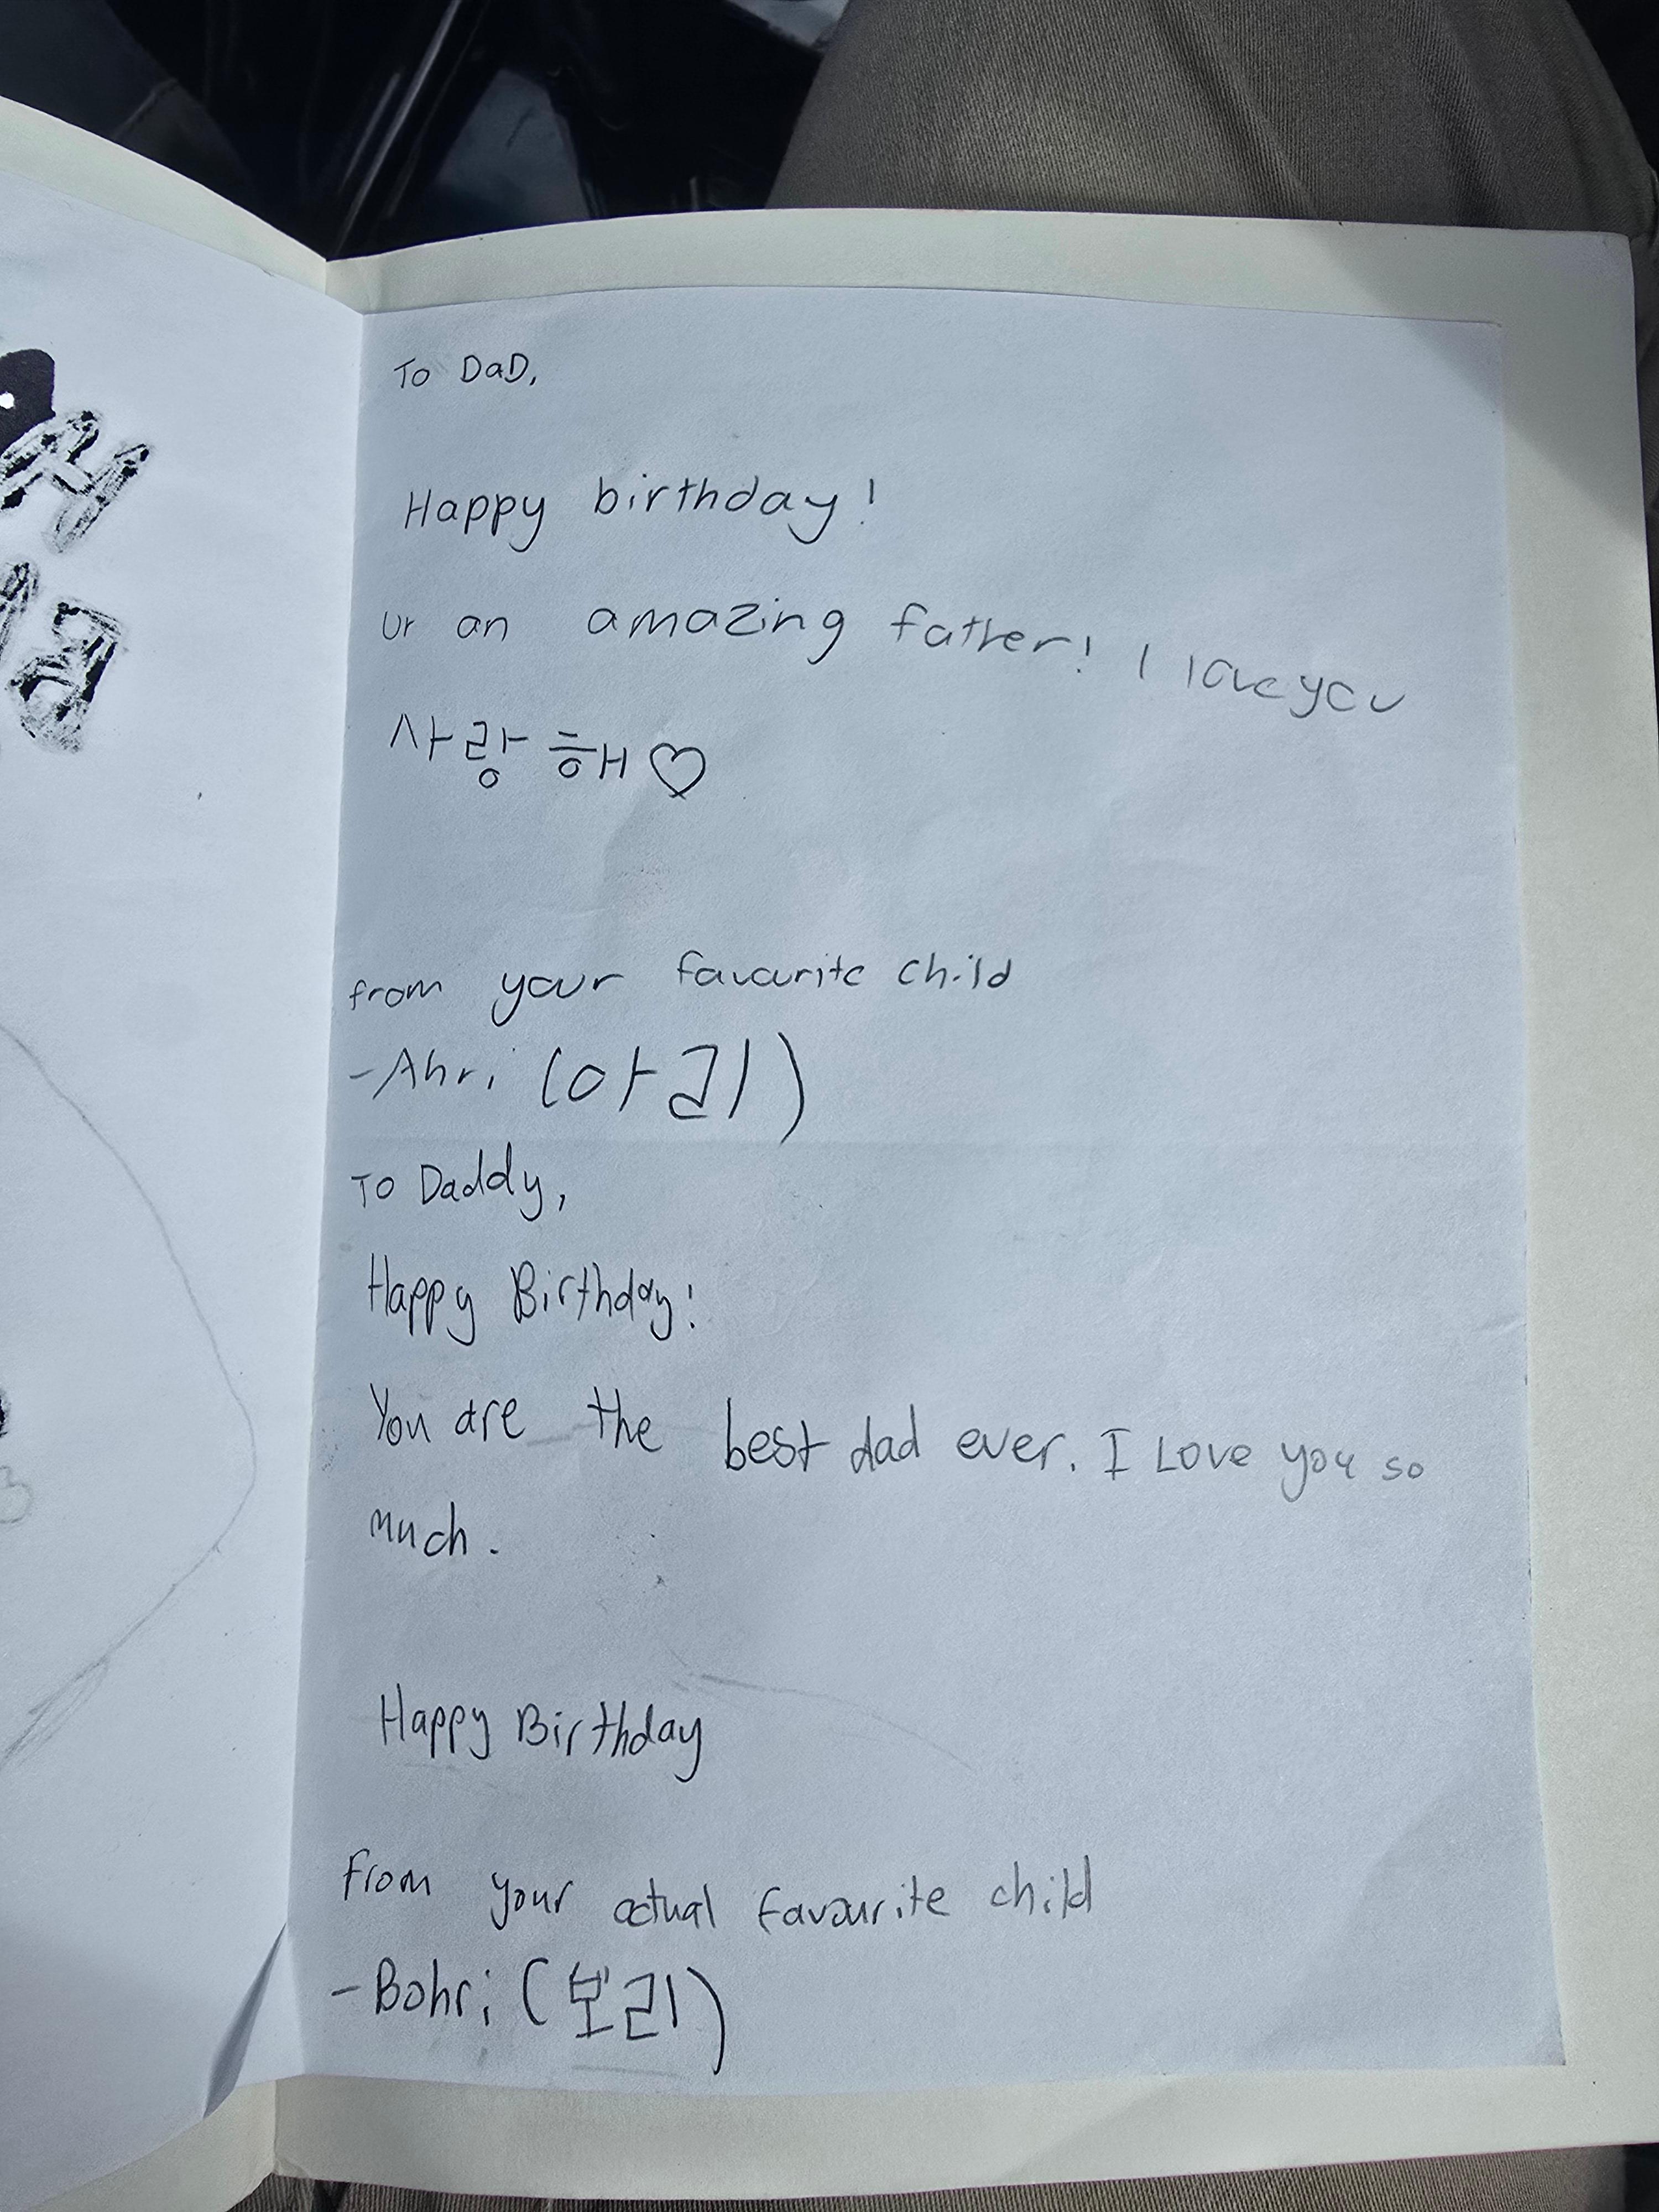 To DaD,
Happy birthday!
ur an amazing father! I love you
사랑해♡
from your favourite child
-Ahri (아리)
To Daddy,
Happy Birthday!
You are the best dad ever. I Love you so
much.
Happy Birthday
from your actual favourite child
-Bohri (보리)